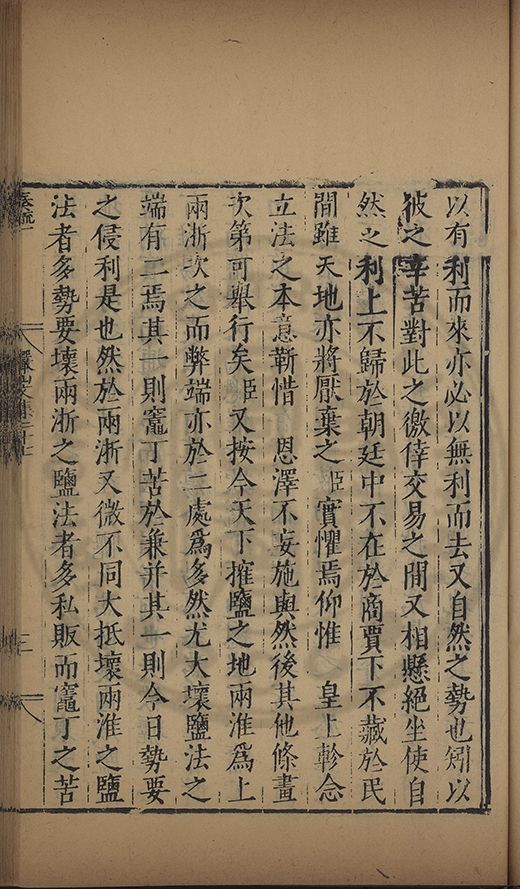 以有利而來亦必以無利而去又自然之勢也矧以
彼之辛苦對此之徼倖交易之間又相懸絕坐使自
然之利上不歸於朝廷中不在於商賈下不藏於民
間雖天地亦將厭棄之臣實懼焉仰惟 皇上軫念
立法之本意靳惜 恩澤不妄施與然後其他條畫
次第可舉行矣臣又按今天下搉鹽之地兩淮爲上
兩浙次之而弊端亦於二處爲多然尤大壞鹽法之
端有二焉其一則竈丁苦於兼并其一則今日勢要
之侵利是也然於兩浙又微不同大抵壞兩淮之鹽
法者多勢要壞兩浙之鹽法者多私販而竈丁之苦
奏疏一